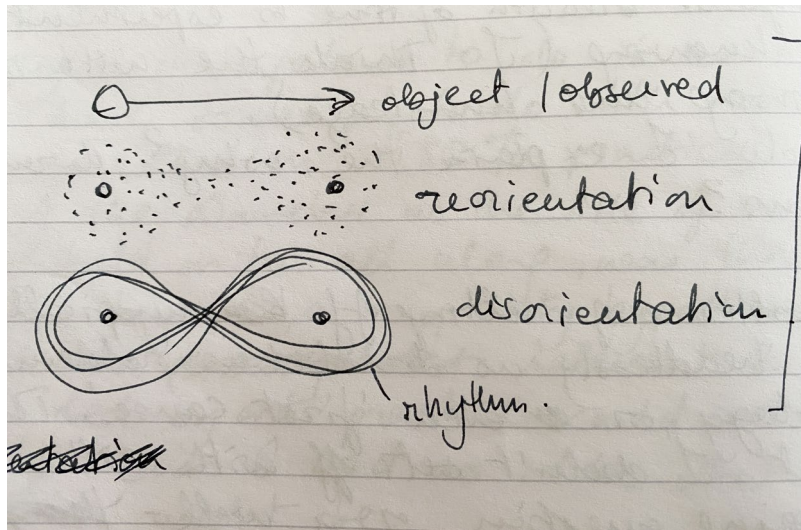 object / observed
reorientation
disorientation
rhythm.